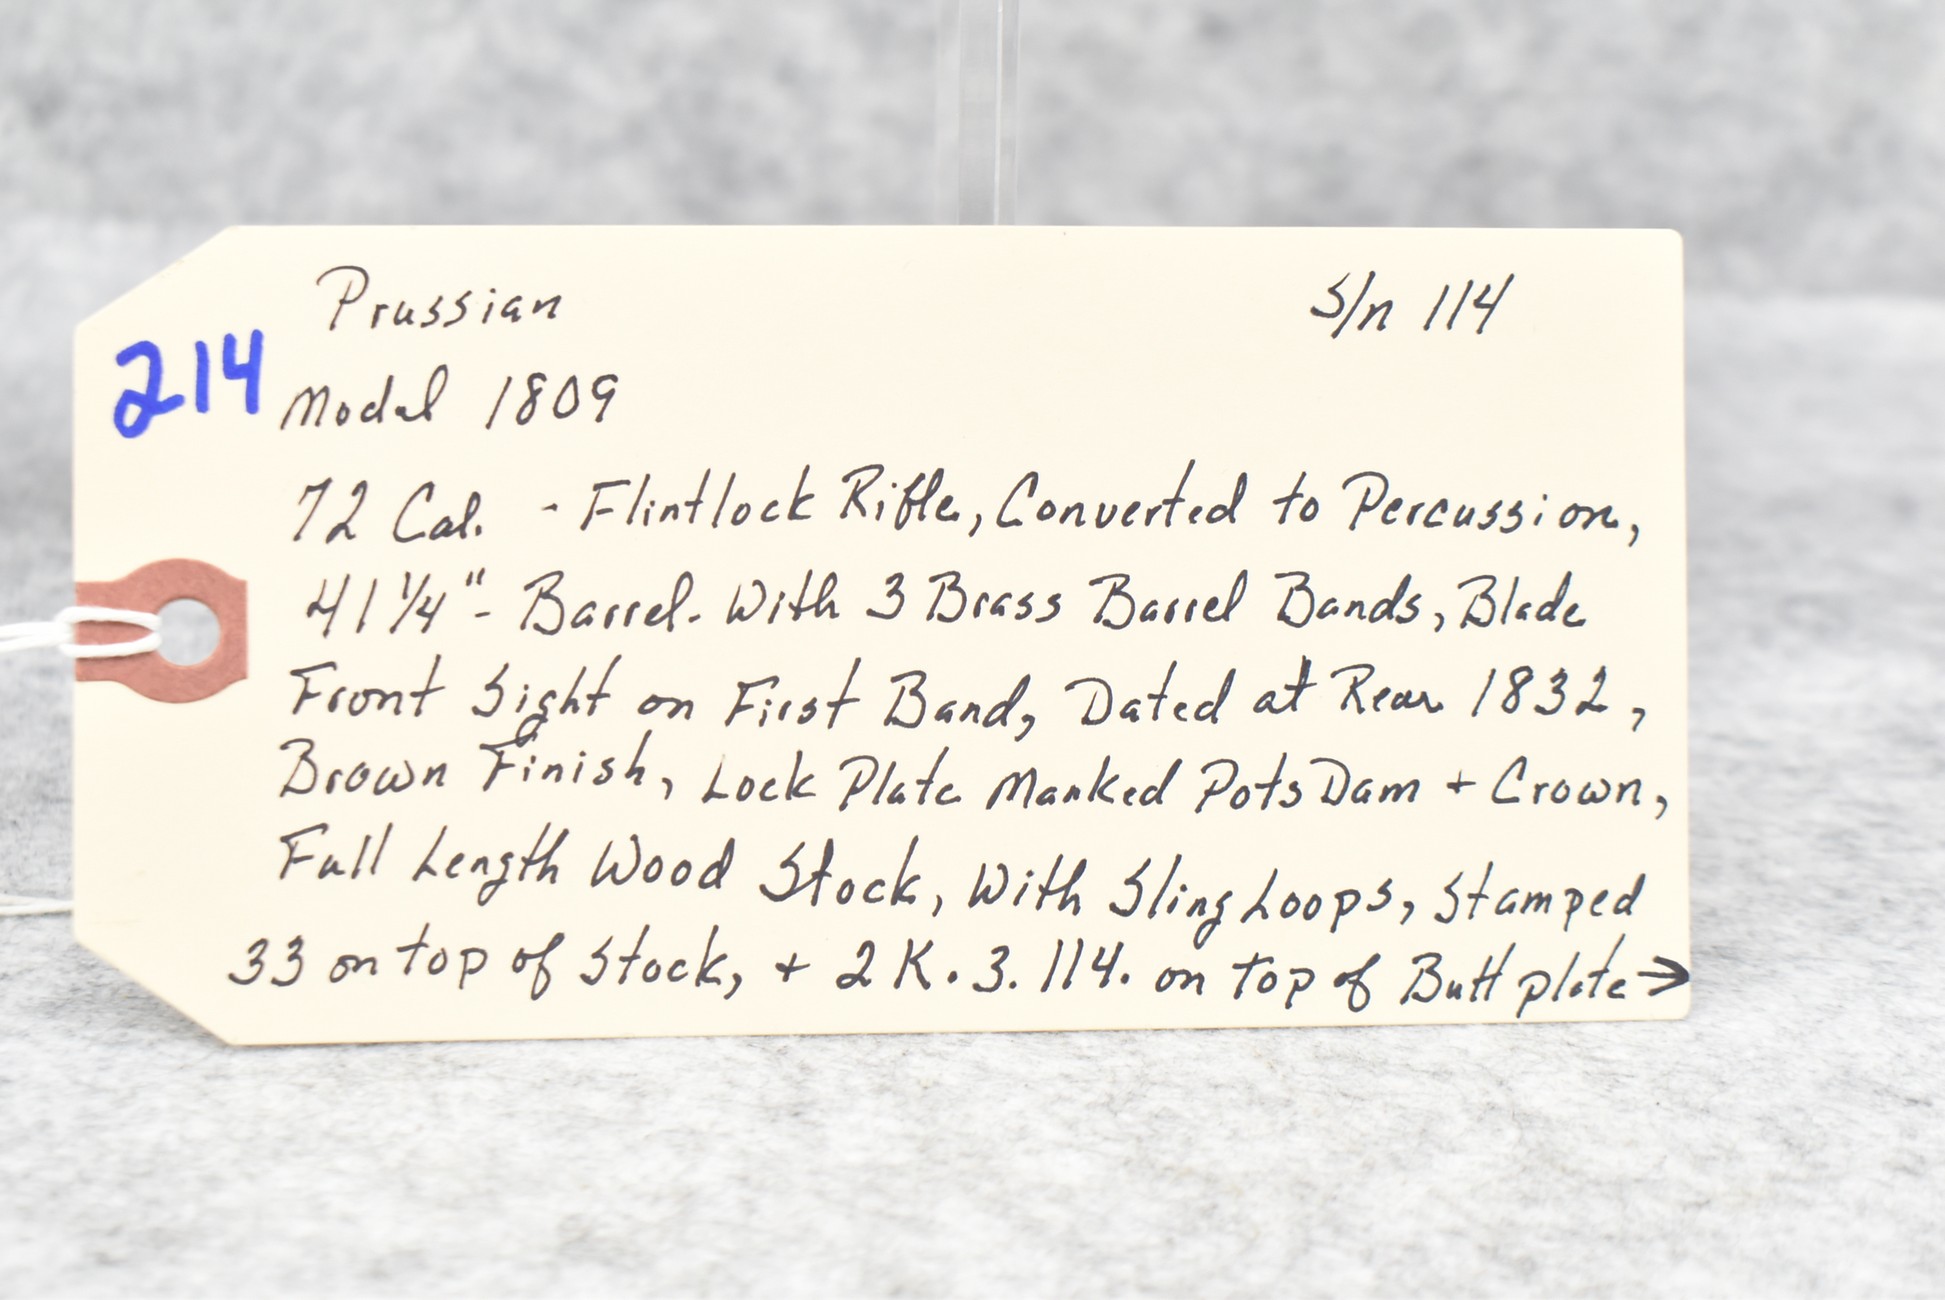 Prussian S/n 114
214
Model 1809
72 Cal. - Flintlock Rifle, Converted to Percussion,
41 1/4" - Barrel. With 3 Brass Barrel Bands, Blade
Front Sight on First Band, Dated at Rear 1832,
Brown Finish, Lock Plate Marked PotsDam + Crown,
Full Length Wood Stock, With Sling Loops, Stamped
33 on top of Stock, + 2 K. 3. 114. on top of Butt plate →